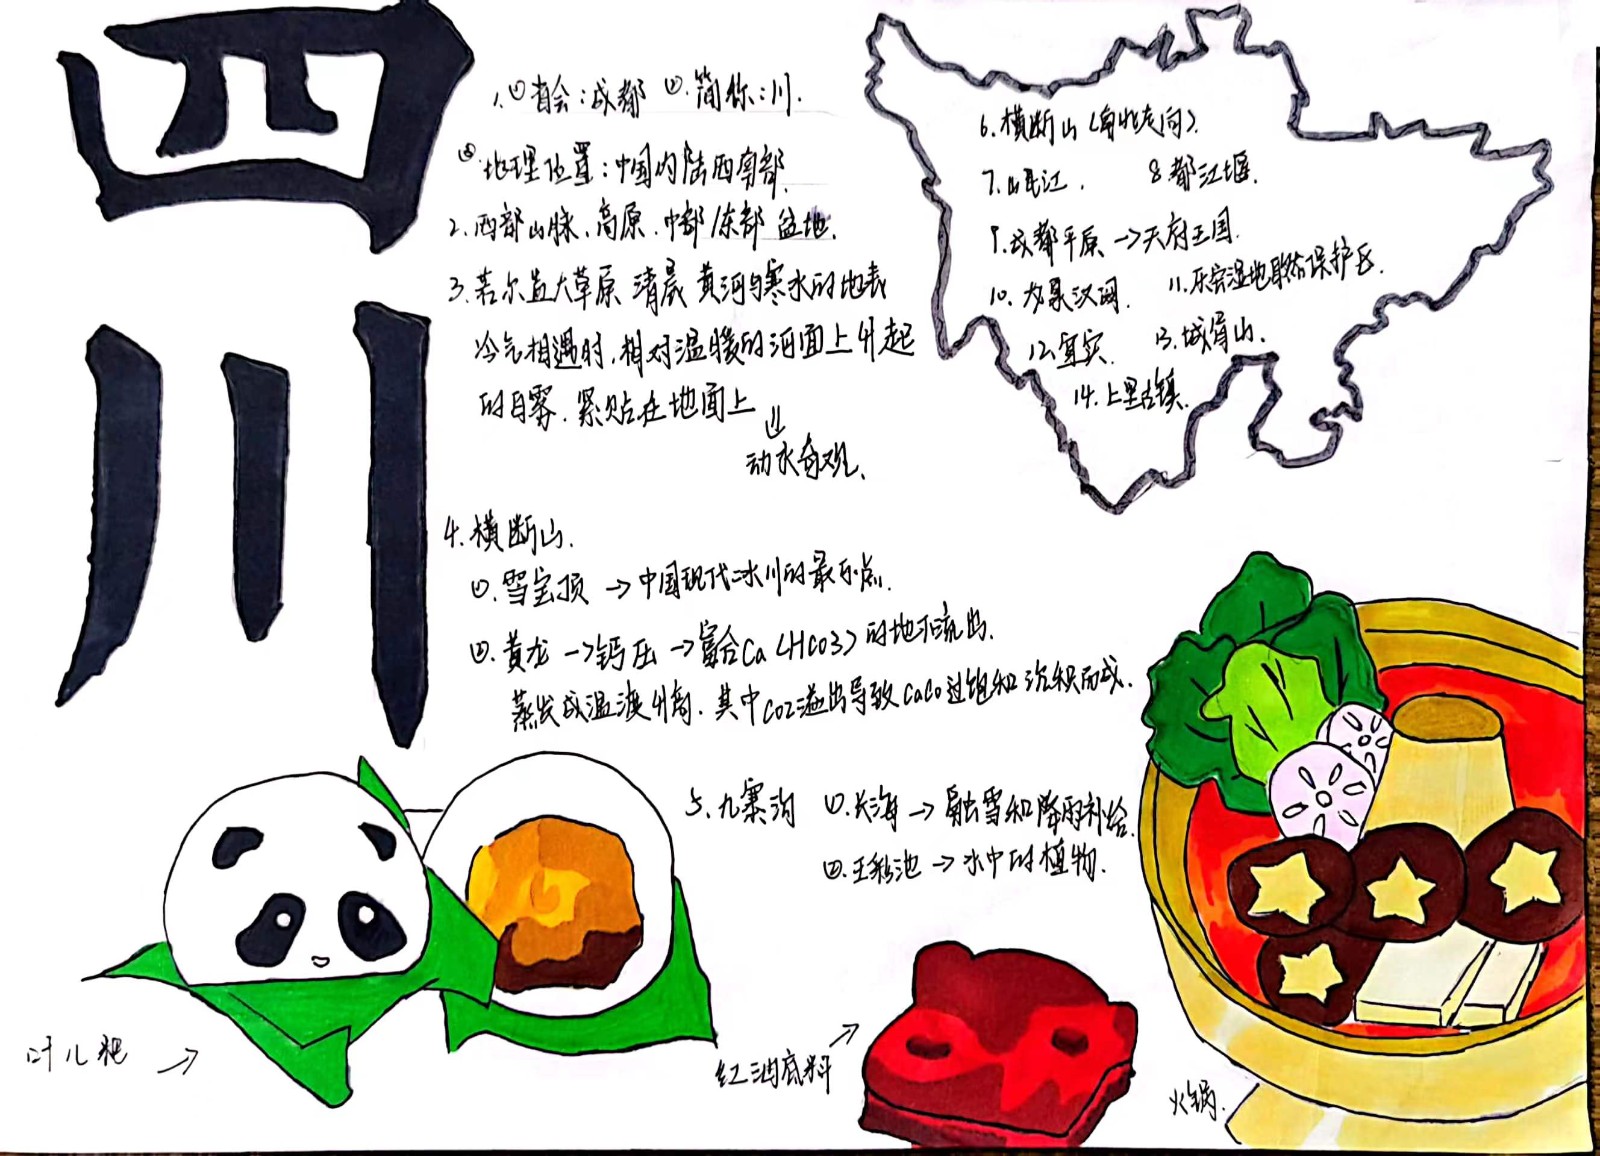 四川
1.① 省会:成都 ②.简称:川.
③.地理位置:中国内陆西南部.
2.西部山脉、高原.中部/东部 盆地.
3.若尔盖大草原 清晨 黄河与寒水的地表
冷气相遇时,相对温暖的河面上升起
的白雾.紧贴在地面上
动水奇观.
4.横断山.
①.雪宝顶 →中国现代冰川的最东点.
②.黄龙→钙压→富合Ca(HCO3)的地下流出.
蒸发或温度升高.其中CO2溢出导致CaCO过饱和沉积而成.
5.九寨沟 ①.长海→融雪和降雨补给.
②.王彩池→水中的植物.
6.横断山(南北走向).
7.岷江. 8.都江堰.
9.成都平原→天府王国.
11.乐安湿地 保护区.
10.汉阙.
12.宜宾. 13.峨眉山.
14.上里古镇.
叶儿粑
红油底料
火锅.